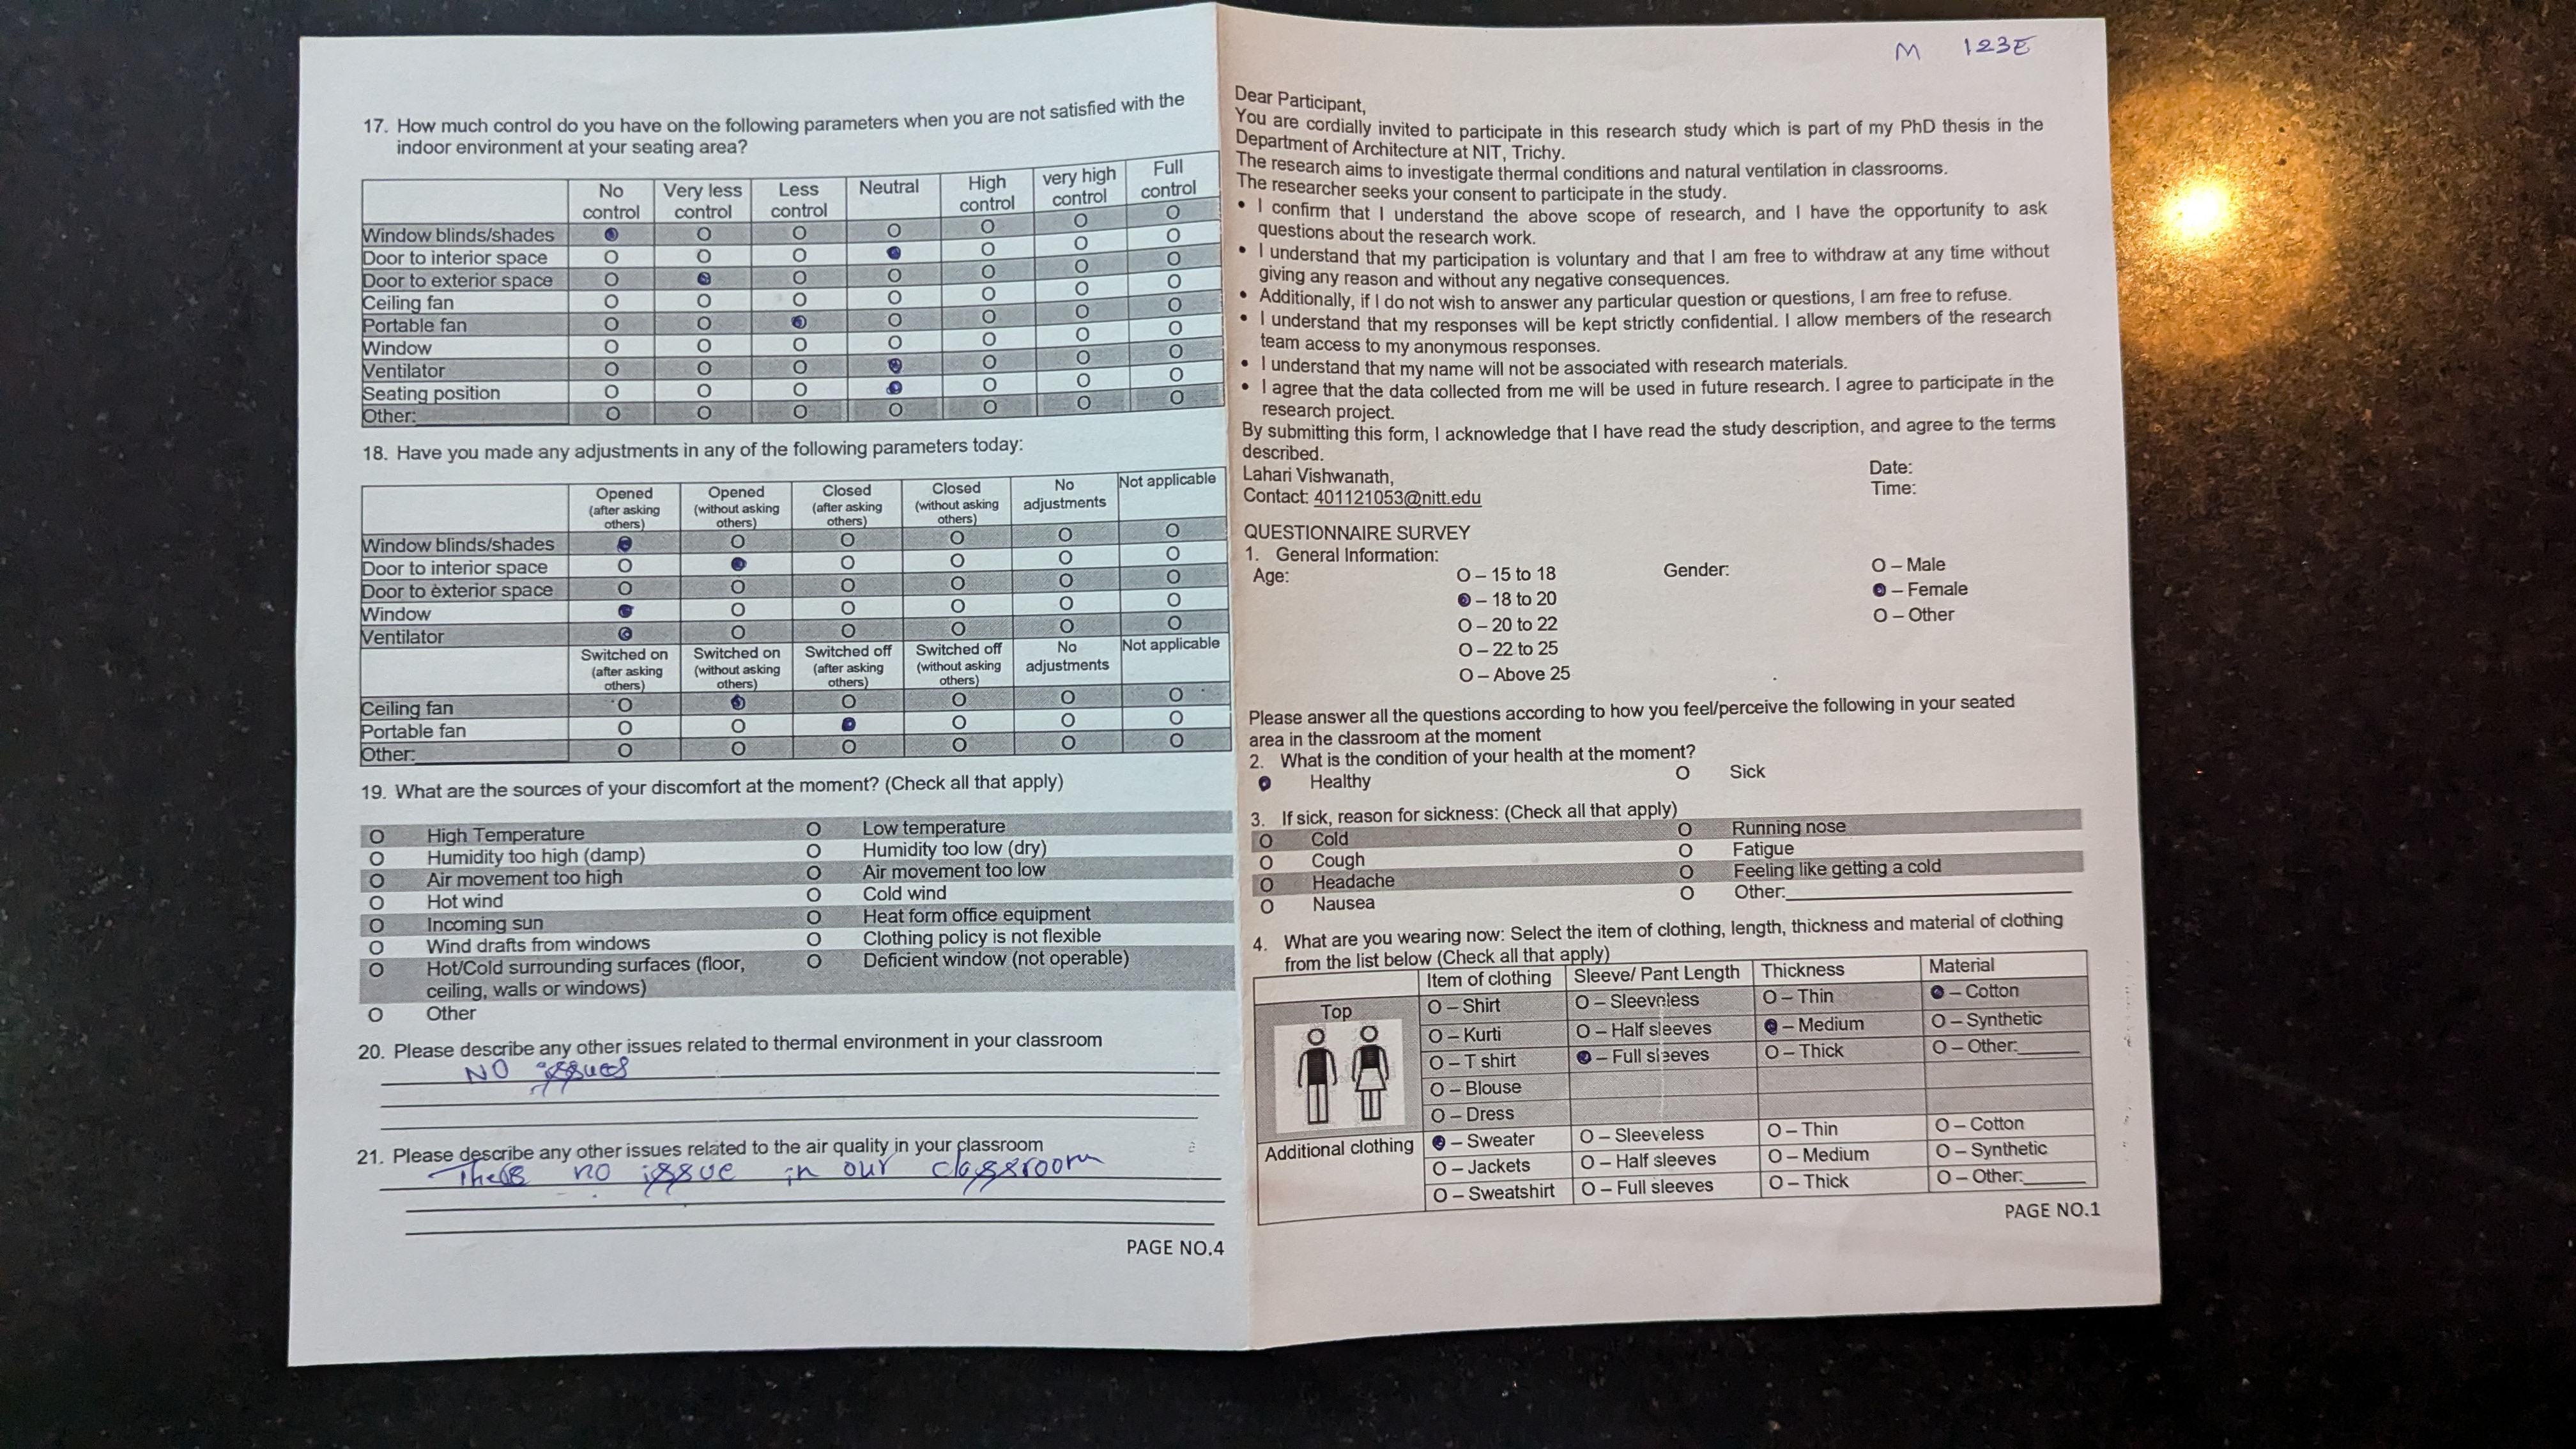 17. How much control do you have on the following parameters when you are not satisfied with the
indoor environment at your seating area?
No control Very less control Less control Neutral High control very high control Full control
Window blinds/shades O O O O O O
Door to interior space O O O O O O
Door to exterior space O O O O O O
Ceiling fan O O O O O O O
Portable fan O O O O O O
Window O O O O O O O
Ventilator O O O O O O
Seating position O O O O O O
Other: O O O O O O O
18. Have you made any adjustments in any of the following parameters today:
Opened (after asking others) Opened (without asking others) Closed (after asking others) Closed (without asking others) No adjustments Not applicable
Window blinds/shades O O O O O
Door to interior space O O O O O
Door to exterior space O O O O O O
Window O O O O O
Ventilator O O O O O
Switched on (after asking others) Switched on (without asking others) Switched off (after asking others) Switched off (without asking others) No adjustments Not applicable
Ceiling fan O O O O O
Portable fan O O O O O
Other: O O O O O O
19. What are the sources of your discomfort at the moment? (Check all that apply)
O High Temperature O Low temperature
O Humidity too high (damp) O Humidity too low (dry)
O Air movement too high O Air movement too low
O Hot wind O Cold wind
O Incoming sun O Heat form office equipment
O Wind drafts from windows O Clothing policy is not flexible
O Hot/Cold surrounding surfaces (floor, O Deficient window (not operable)
ceiling, walls or windows)
O Other
20. Please describe any other issues related to thermal environment in your classroom
NO issues
21. Please describe any other issues related to the air quality in your classroom
no issue in our classroom
PAGE NO.4
M 123E
Dear Participant,
You are cordially invited to participate in this research study which is part of my PhD thesis in the
Department of Architecture at NIT, Trichy.
The research aims to investigate thermal conditions and natural ventilation in classrooms.
The researcher seeks your consent to participate in the study.
• I confirm that I understand the above scope of research, and I have the opportunity to ask
questions about the research work.
• I understand that my participation is voluntary and that I am free to withdraw at any time without
giving any reason and without any negative consequences.
• Additionally, if I do not wish to answer any particular question or questions, I am free to refuse.
• I understand that my responses will be kept strictly confidential. I allow members of the research
team access to my anonymous responses.
• I understand that my name will not be associated with research materials.
• I agree that the data collected from me will be used in future research. I agree to participate in the
research project.
By submitting this form, I acknowledge that I have read the study description, and agree to the terms
described.
Lahari Vishwanath, Date:
Contact: 401121053@nitt.edu Time:
QUESTIONNAIRE SURVEY
1. General Information:
Age: O – 15 to 18 Gender: O – Male
– 18 to 20 – Female
O – 20 to 22 O – Other
O – 22 to 25
O – Above 25
Please answer all the questions according to how you feel/perceive the following in your seated
area in the classroom at the moment
2. What is the condition of your health at the moment?
Healthy O Sick
3. If sick, reason for sickness: (Check all that apply)
O Cold O Running nose
O Cough O Fatigue
O Headache O Feeling like getting a cold
O Nausea O Other:
4. What are you wearing now: Select the item of clothing, length, thickness and material of clothing
from the list below (Check all that apply)
Item of clothing Sleeve/ Pant Length Thickness Material
Top O – Shirt O – Sleeveless O – Thin – Cotton
O – Kurti O – Half sleeves – Medium O – Synthetic
O – T shirt – Full sleeves O – Thick O – Other:
O – Blouse
O – Dress
Additional clothing – Sweater O – Sleeveless O – Thin O – Cotton
O – Jackets O – Half sleeves O – Medium O – Synthetic
O – Sweatshirt O – Full sleeves O – Thick O – Other:
PAGE NO.1